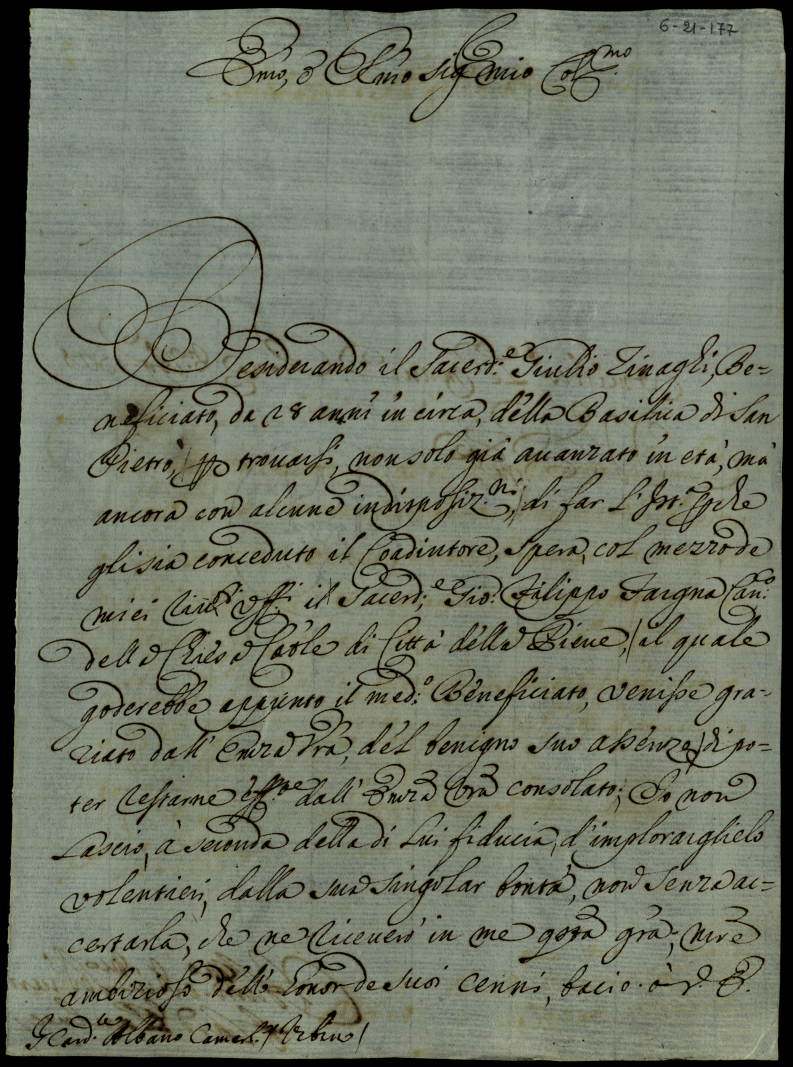 6-21-177
Emo, e Rmo Sig. mio Col.mo
Desiderando il Sacerd.e Giulio Zinaghi, Be=
neficiato, da 28 anni in circa, della Basilica di San
Pietro, p trovarsi, non solo già avanzato in età, mà
ancora con alcune indisposiz.ni, di far l'Ist.a, pche
gli sia conceduto il Coadiutore, spera, col mezzo de
miei Uffi il Sacerd.e Gio: Filippo Fargna Can.o
della Chiesa Catle di Città della Pieve, al quale
goderebbe appunto il med.o Beneficiato, venisse gra=
ziato dall' Emza Vra, del benigno suo assenzo, di po=
ter restarne dall' Emza Vra consolato; Io non
lascio, à seconda della di Lui fiducia, d'implorarglielo
volentieri, dalla sua singolar bontà, non senza ac=
certarla, che ne riceverò in me qsta gra; mre
ambizioso dell' honor de suoi cenni, bacio à V. E.
S Card.le Albano Camerl. Urbin